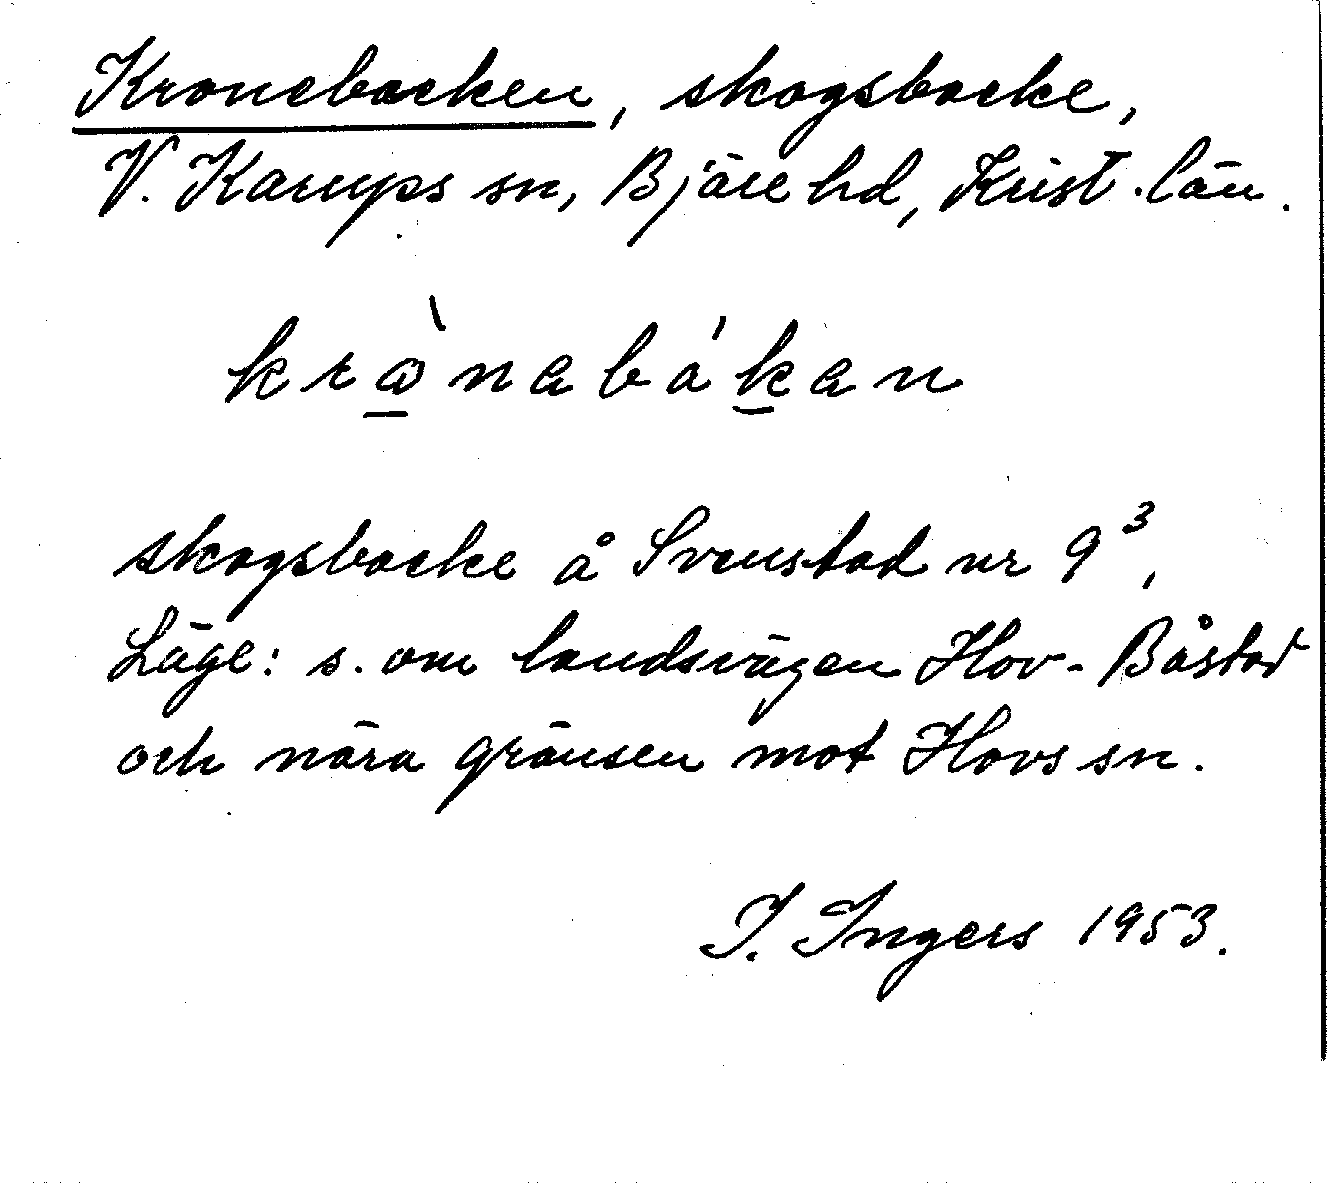 Kronebacken, skogsbacke,
V. Karups sn, Bjäre hd, Krist. län.
krònabákan
skogsbacke å Svenstad nr 9³,
Läge: s. om landsvägen Hov - Båstad
och nära gränsen mot Hovs sn.
I. Ingers 1953.